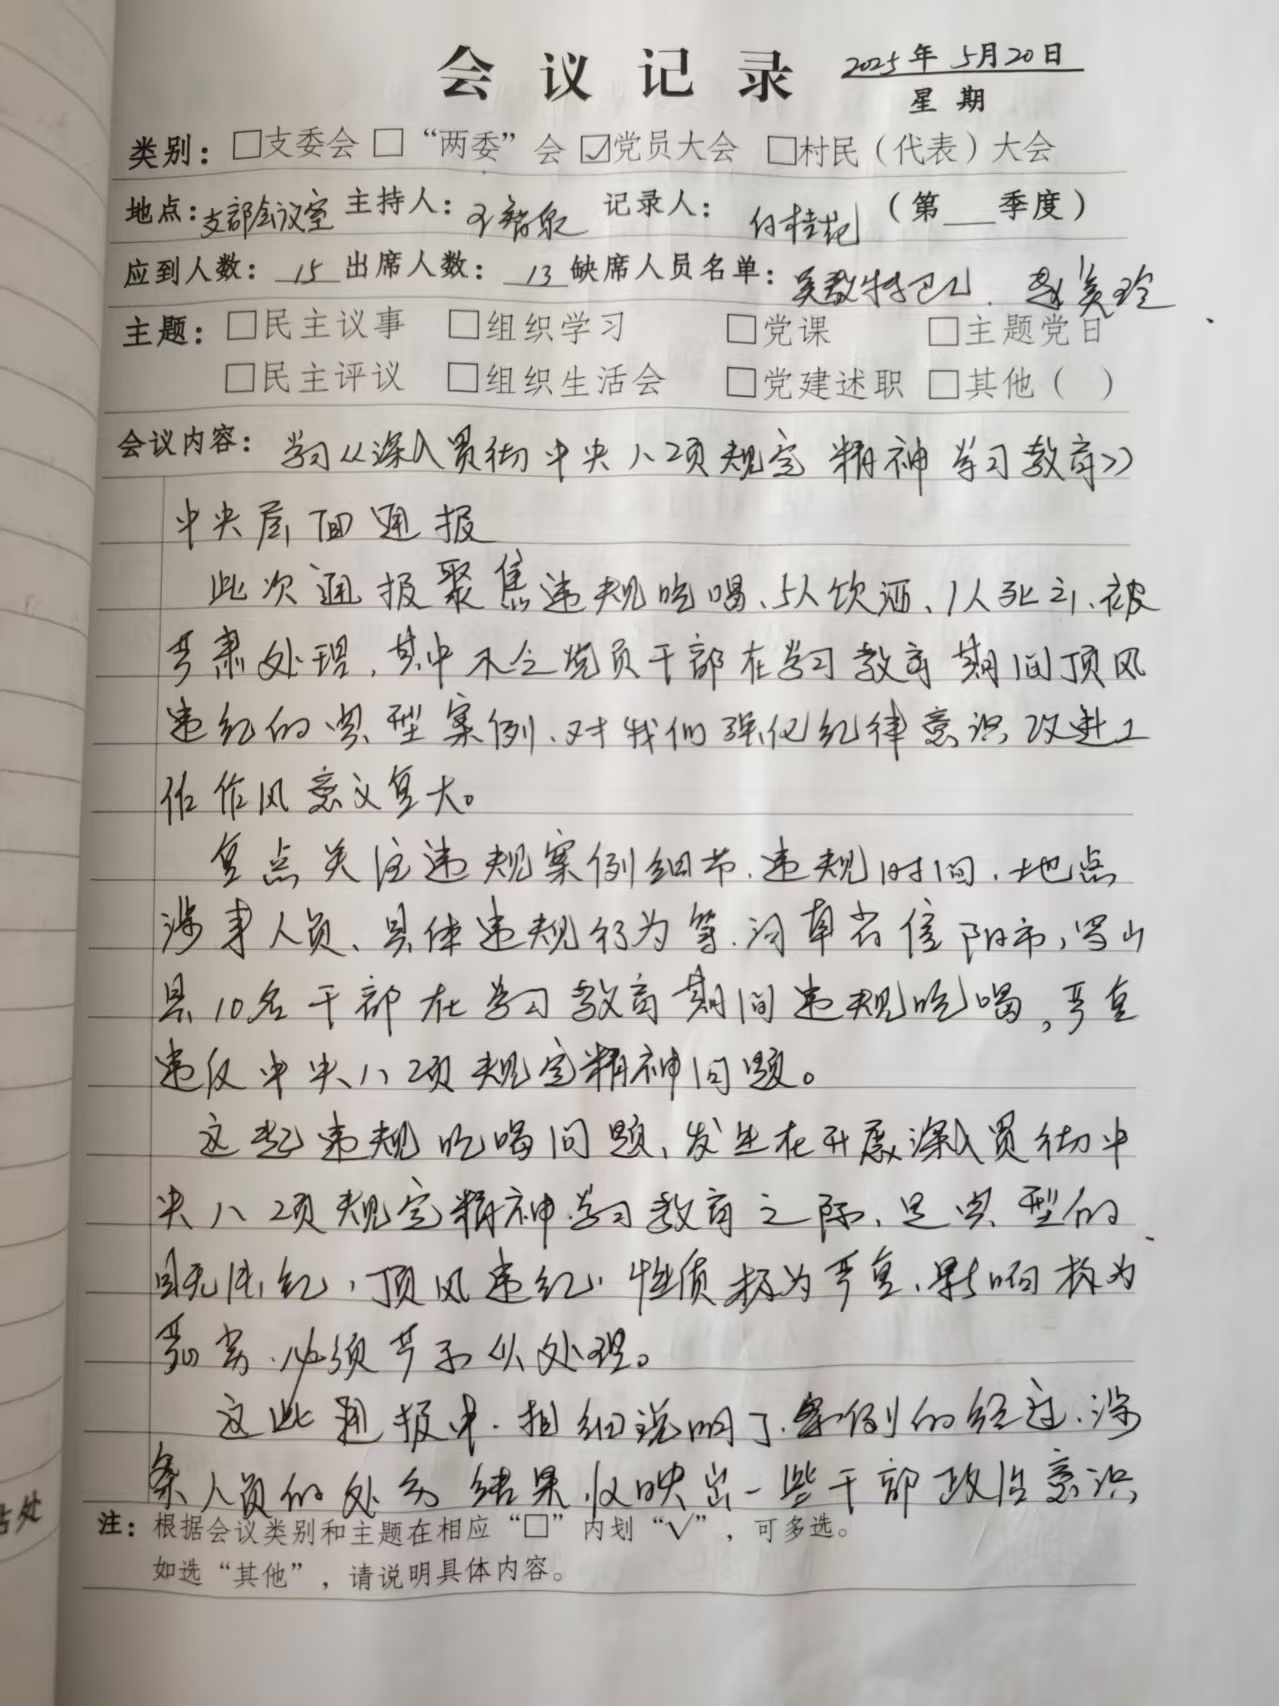 会议记录 2025年5月20日
星期
类别：□支委会 □“两委”会 ☑党员大会 □村民（代表）大会
地点：支部会议室 主持人： 记录人：付桂花 （第___季度）
应到人数：15 出席人数：13 缺席人员名单：
主题：□民主议事 □组织学习 □党课 □主题党日
□民主评议 □组织生活会 □党建述职 □其他（ ）
会议内容：学习《深入贯彻中央八项规定精神学习教育》
中央层面通报
此次通报聚焦违规吃喝、5人饮酒、1人死亡、被
严肃处理，其中不乏党员干部在学习教育期间顶风
违纪的典型案例、对我们强化纪律意识改进工
作作风意义重大。
重点关注违规案例细节、违规时间、地点
涉事人员、具体违规行为等、河南省信阳市，罗山
县10名干部在学习教育期间违规吃喝，严重
违反中央八项规定精神问题。
这起违规吃喝问题、发生在开展深入贯彻中
央八项规定精神学习教育之际、是典型的
目无法纪，顶风违纪、性质极为严重、影响极为
恶劣、必须严予以处理。
这些通报中、详细说明了案例的经过、涉
案人员的处分结果、反映出一些干部政治意识
注：根据会议类别和主题在相应“□”内划“√”，可多选。
如选“其他”，请说明具体内容。
处